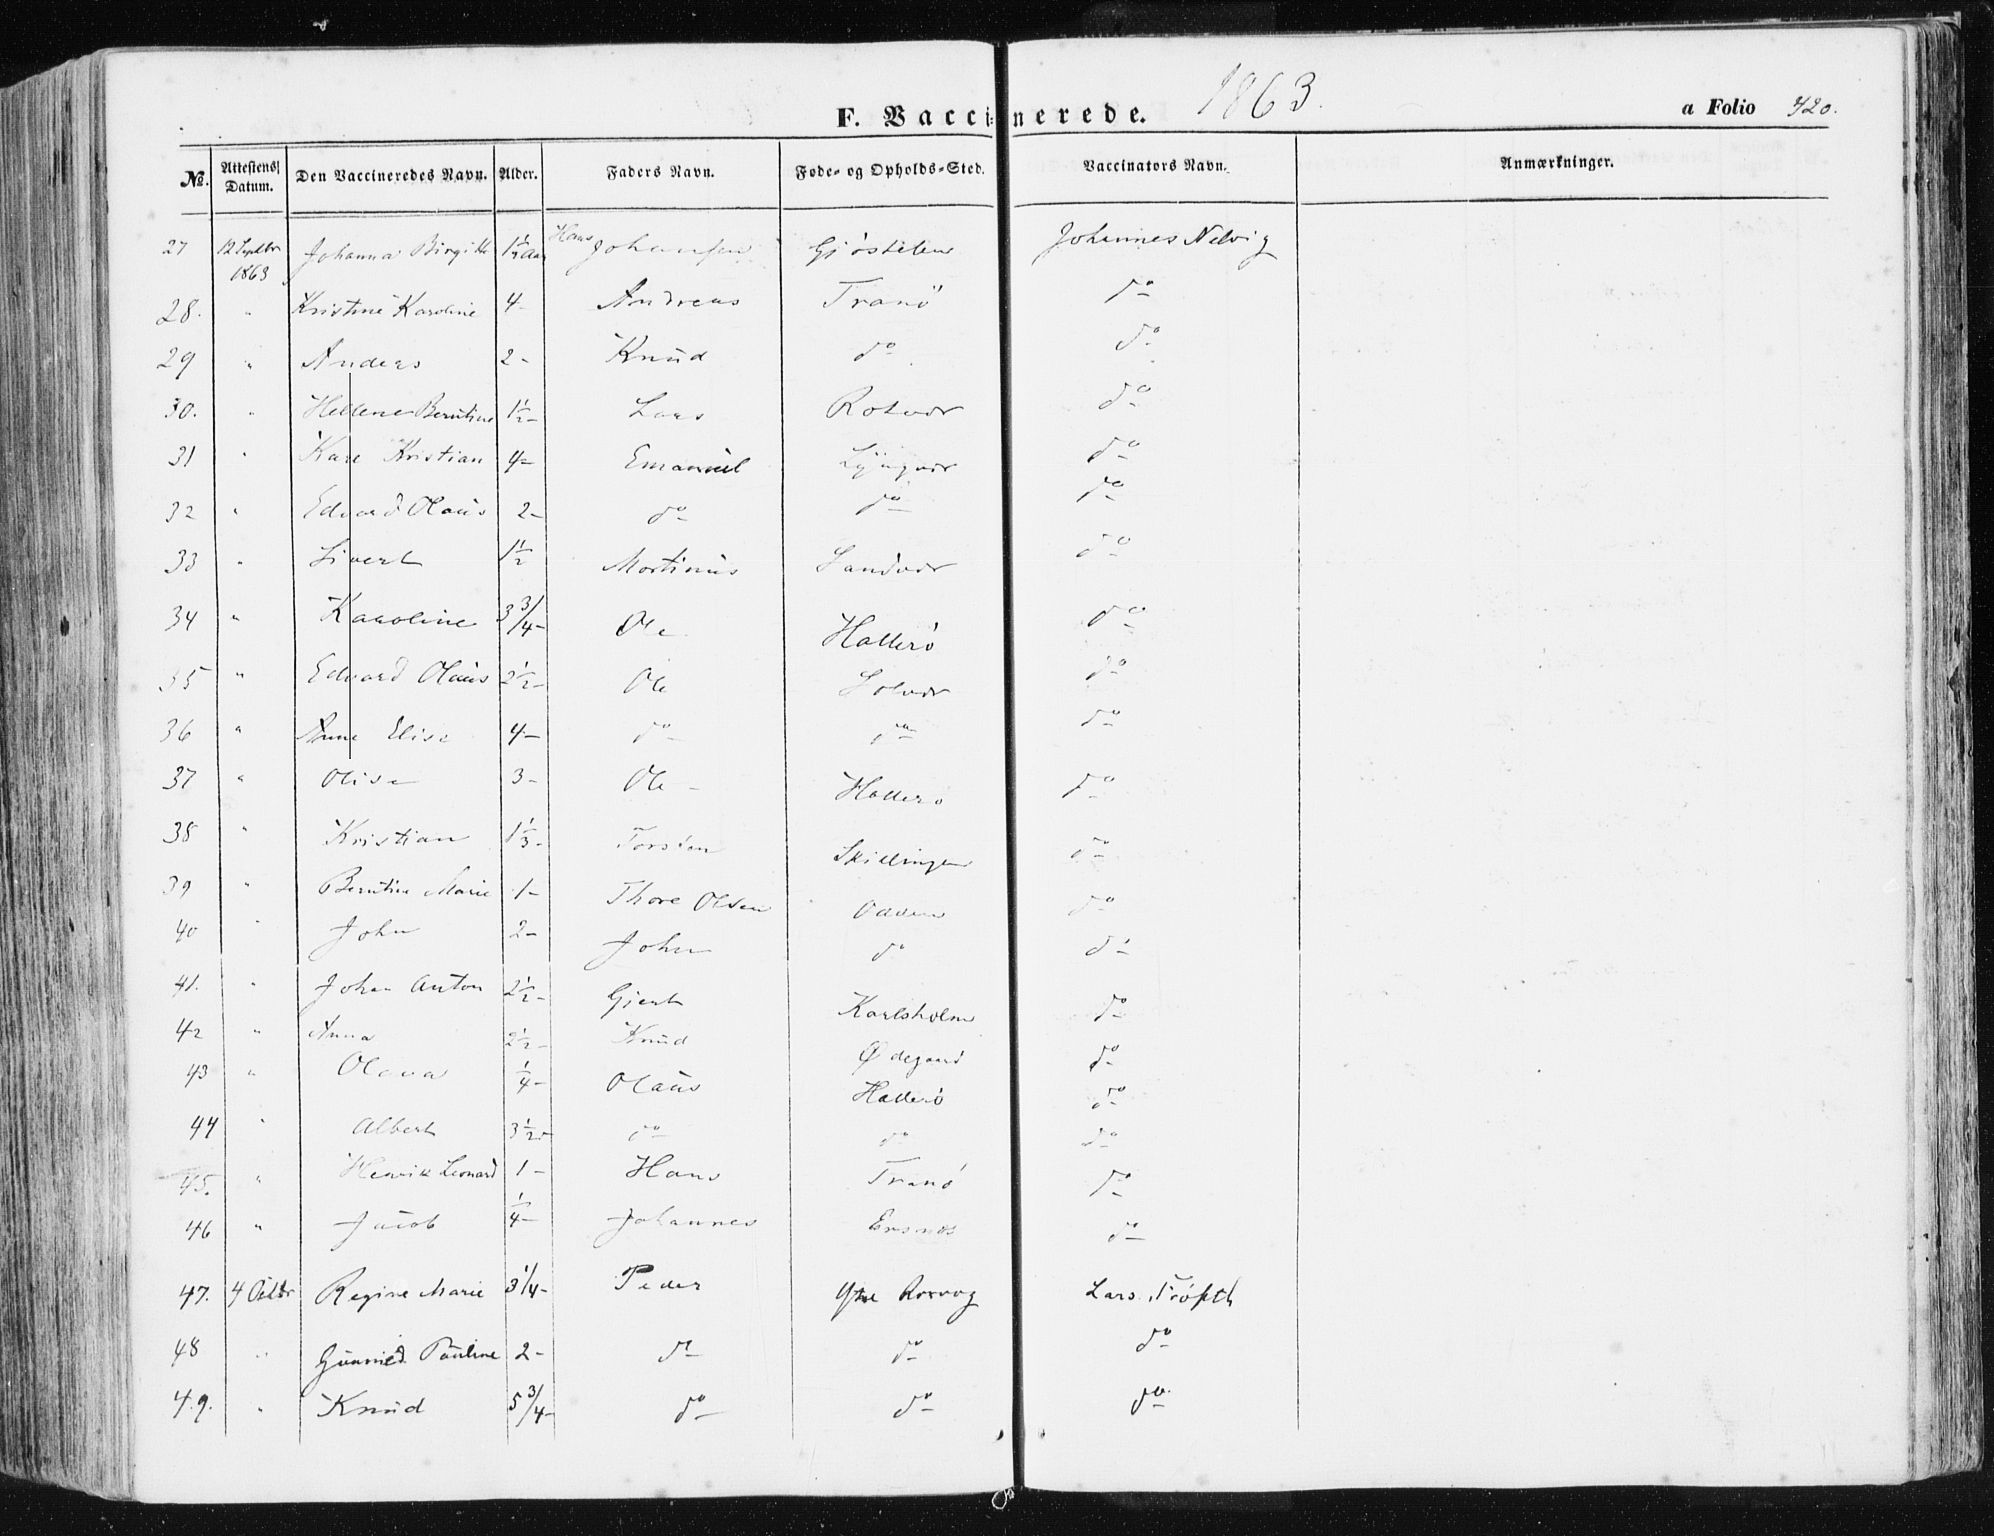 F. Vaccinerede. 1863.
a Folio 420.
No. Attestens Datum. Den Vaccineredes Navn. Alder. Faders Navn. Føde- og Opholds-Sted. Vaccinators Navn. Anmærkninger.
27 12 Septbr 1863 Johanna Birgitte 1½ Aar Hans Johansen Johannes Nelvig
28. " Kristine Karoline 4- Andreas Tranö do
29 " Anders 2- Knud do do
30. " Hellene Berntine 1½- Lars Rotvær do
31 " Karl Kristian 4- Emanuel Lyngvær do
32 " Edvard Olaus 2- do do do
33 " Sivert 1½ Martinus Sandvær do
34 " Karoline 3 3/4- Ole Hallerö do
35 " Edvard Olaus 2½- Ole do
36 " Anne Elise 4- do do do
37 " Olise 3- Ole - Hallerö do
38 " Kristian 1⅓- Torsten Skillingen do
39 " Berntine Marie 1- Thore Olsen Odden do
40 " John 2- John do do
41. " Johan Anton 2½- Gjert Karlsholm do
42 " Anna 2½- Knud Ødegaard do
43 " Olava ¼- Olaus Hallerö do
44 " Albert 3½- do do do
45. " Henrik Leonard 1- Hans Tranö do
46 " Jacob ¼- Johannes Ersnes do
47. 4 Octbr Regine Marie 3¼- Peder Ytre Lars
48 " Pauline 2- do do do
49. " Knud 5 3/4- do do do